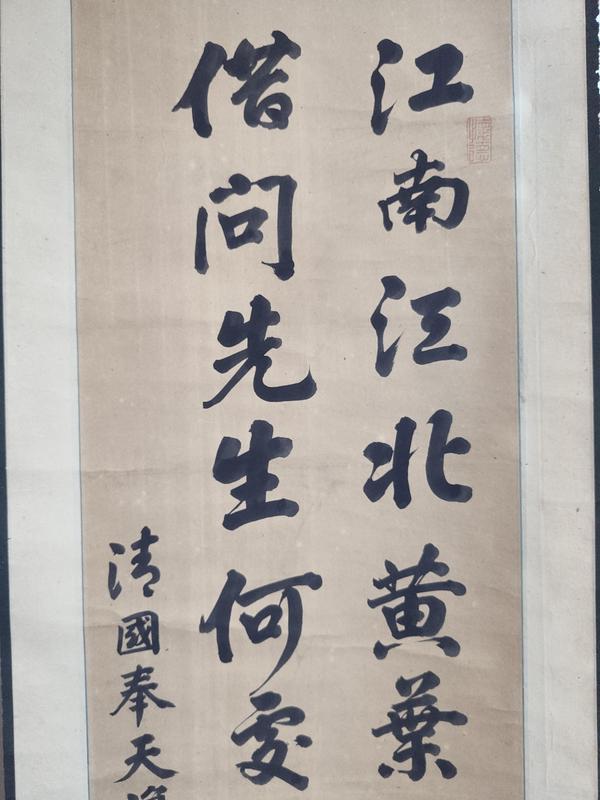 江南江北黄葉
借問先生何處
清國奉天